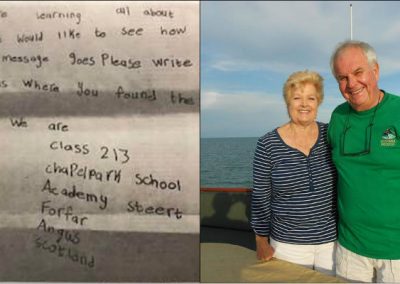 are learning all about
s would like to see how
message goes Please write
s where you found the
We are
class 213
chapelpark school
Academy steert
Forfar
Angus
scotland